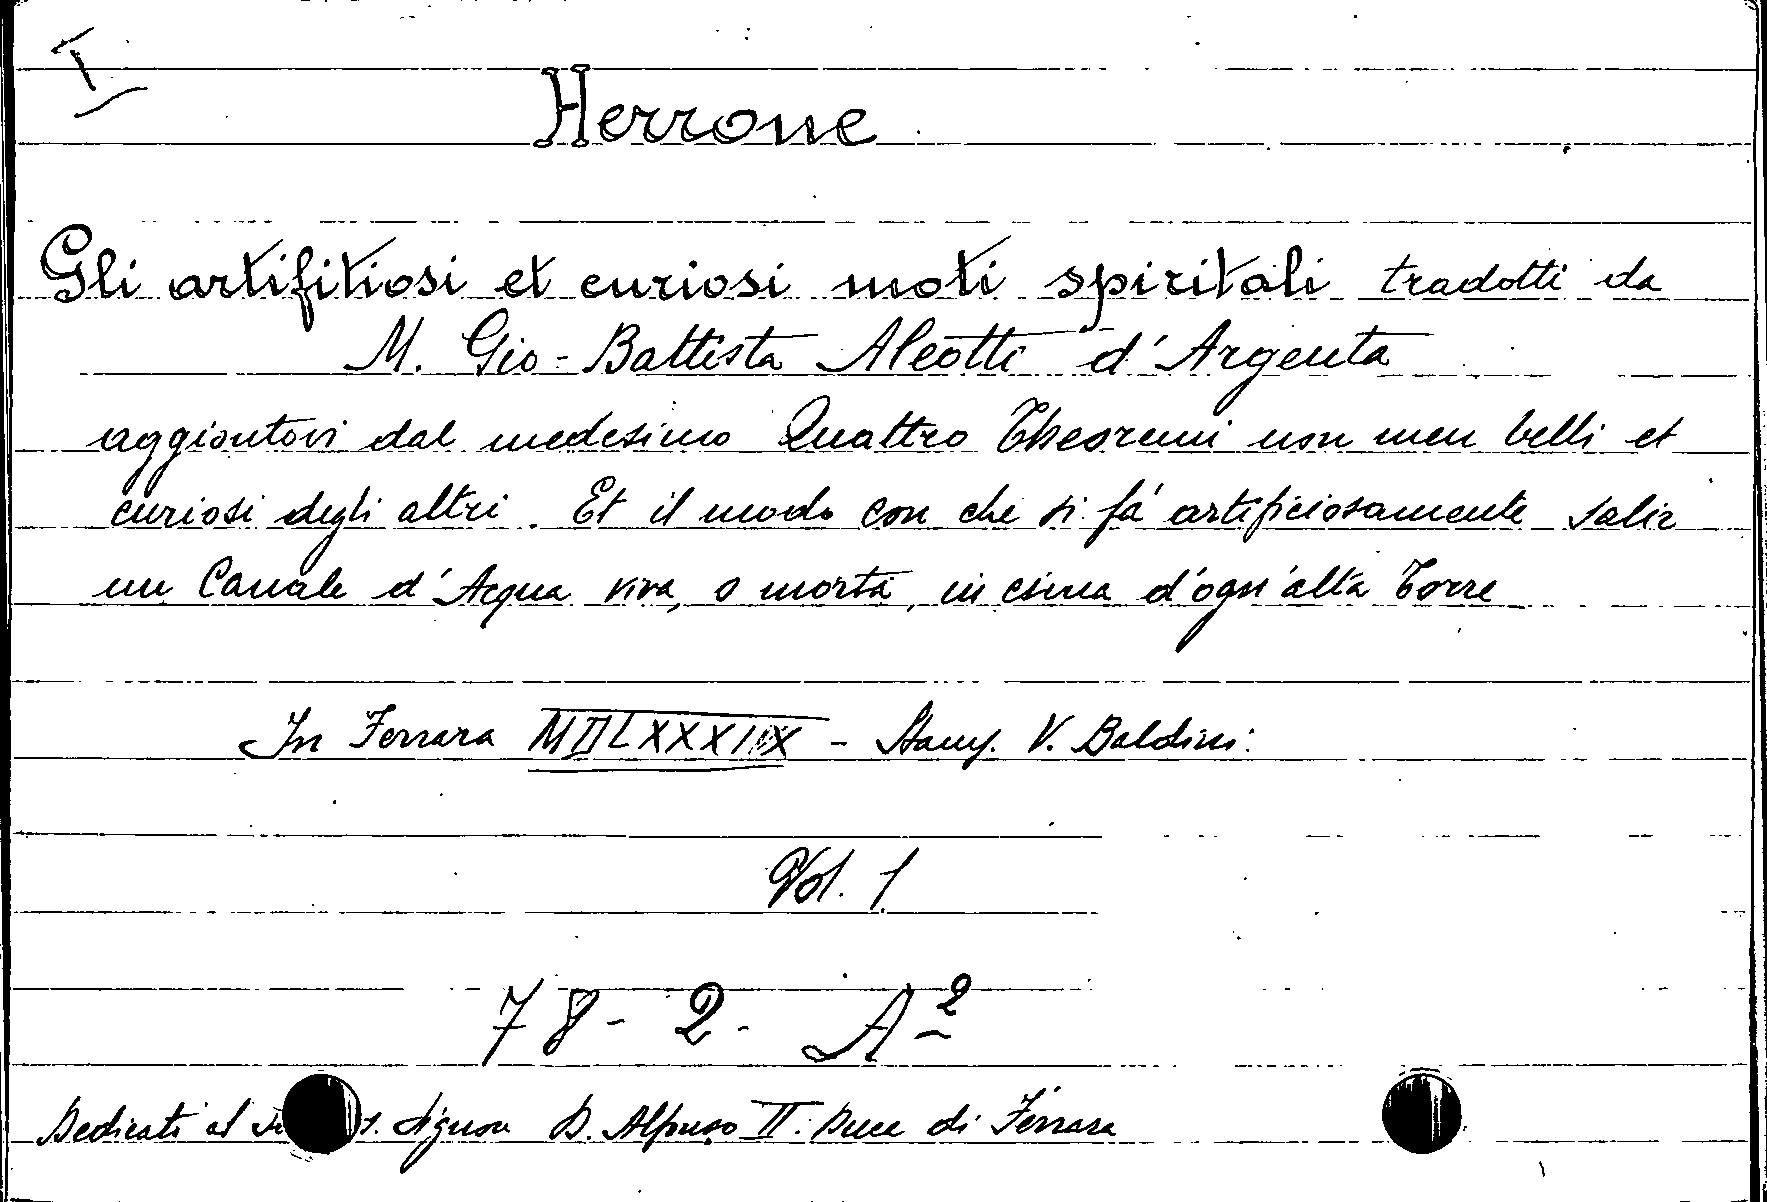 I
Herrone
Gli artifitiosi et curiosi moti spiritali tradotti da
M. Gio-Battista Aleotti d'Argenta
aggiontovi dal medesimo Quattro Theoremi non men belli et
curiosi degli altri. Et il modo con che si fá artificiosamente salir
un Canale d'Acqua viva, o morta, in cima d'ogn'alta Torre
In Ferrara - Stamp. V. Baldini.
Vol. 1
78-2-A2
Dedicati al Signor D. Alfonso II. Duca di Ferrara